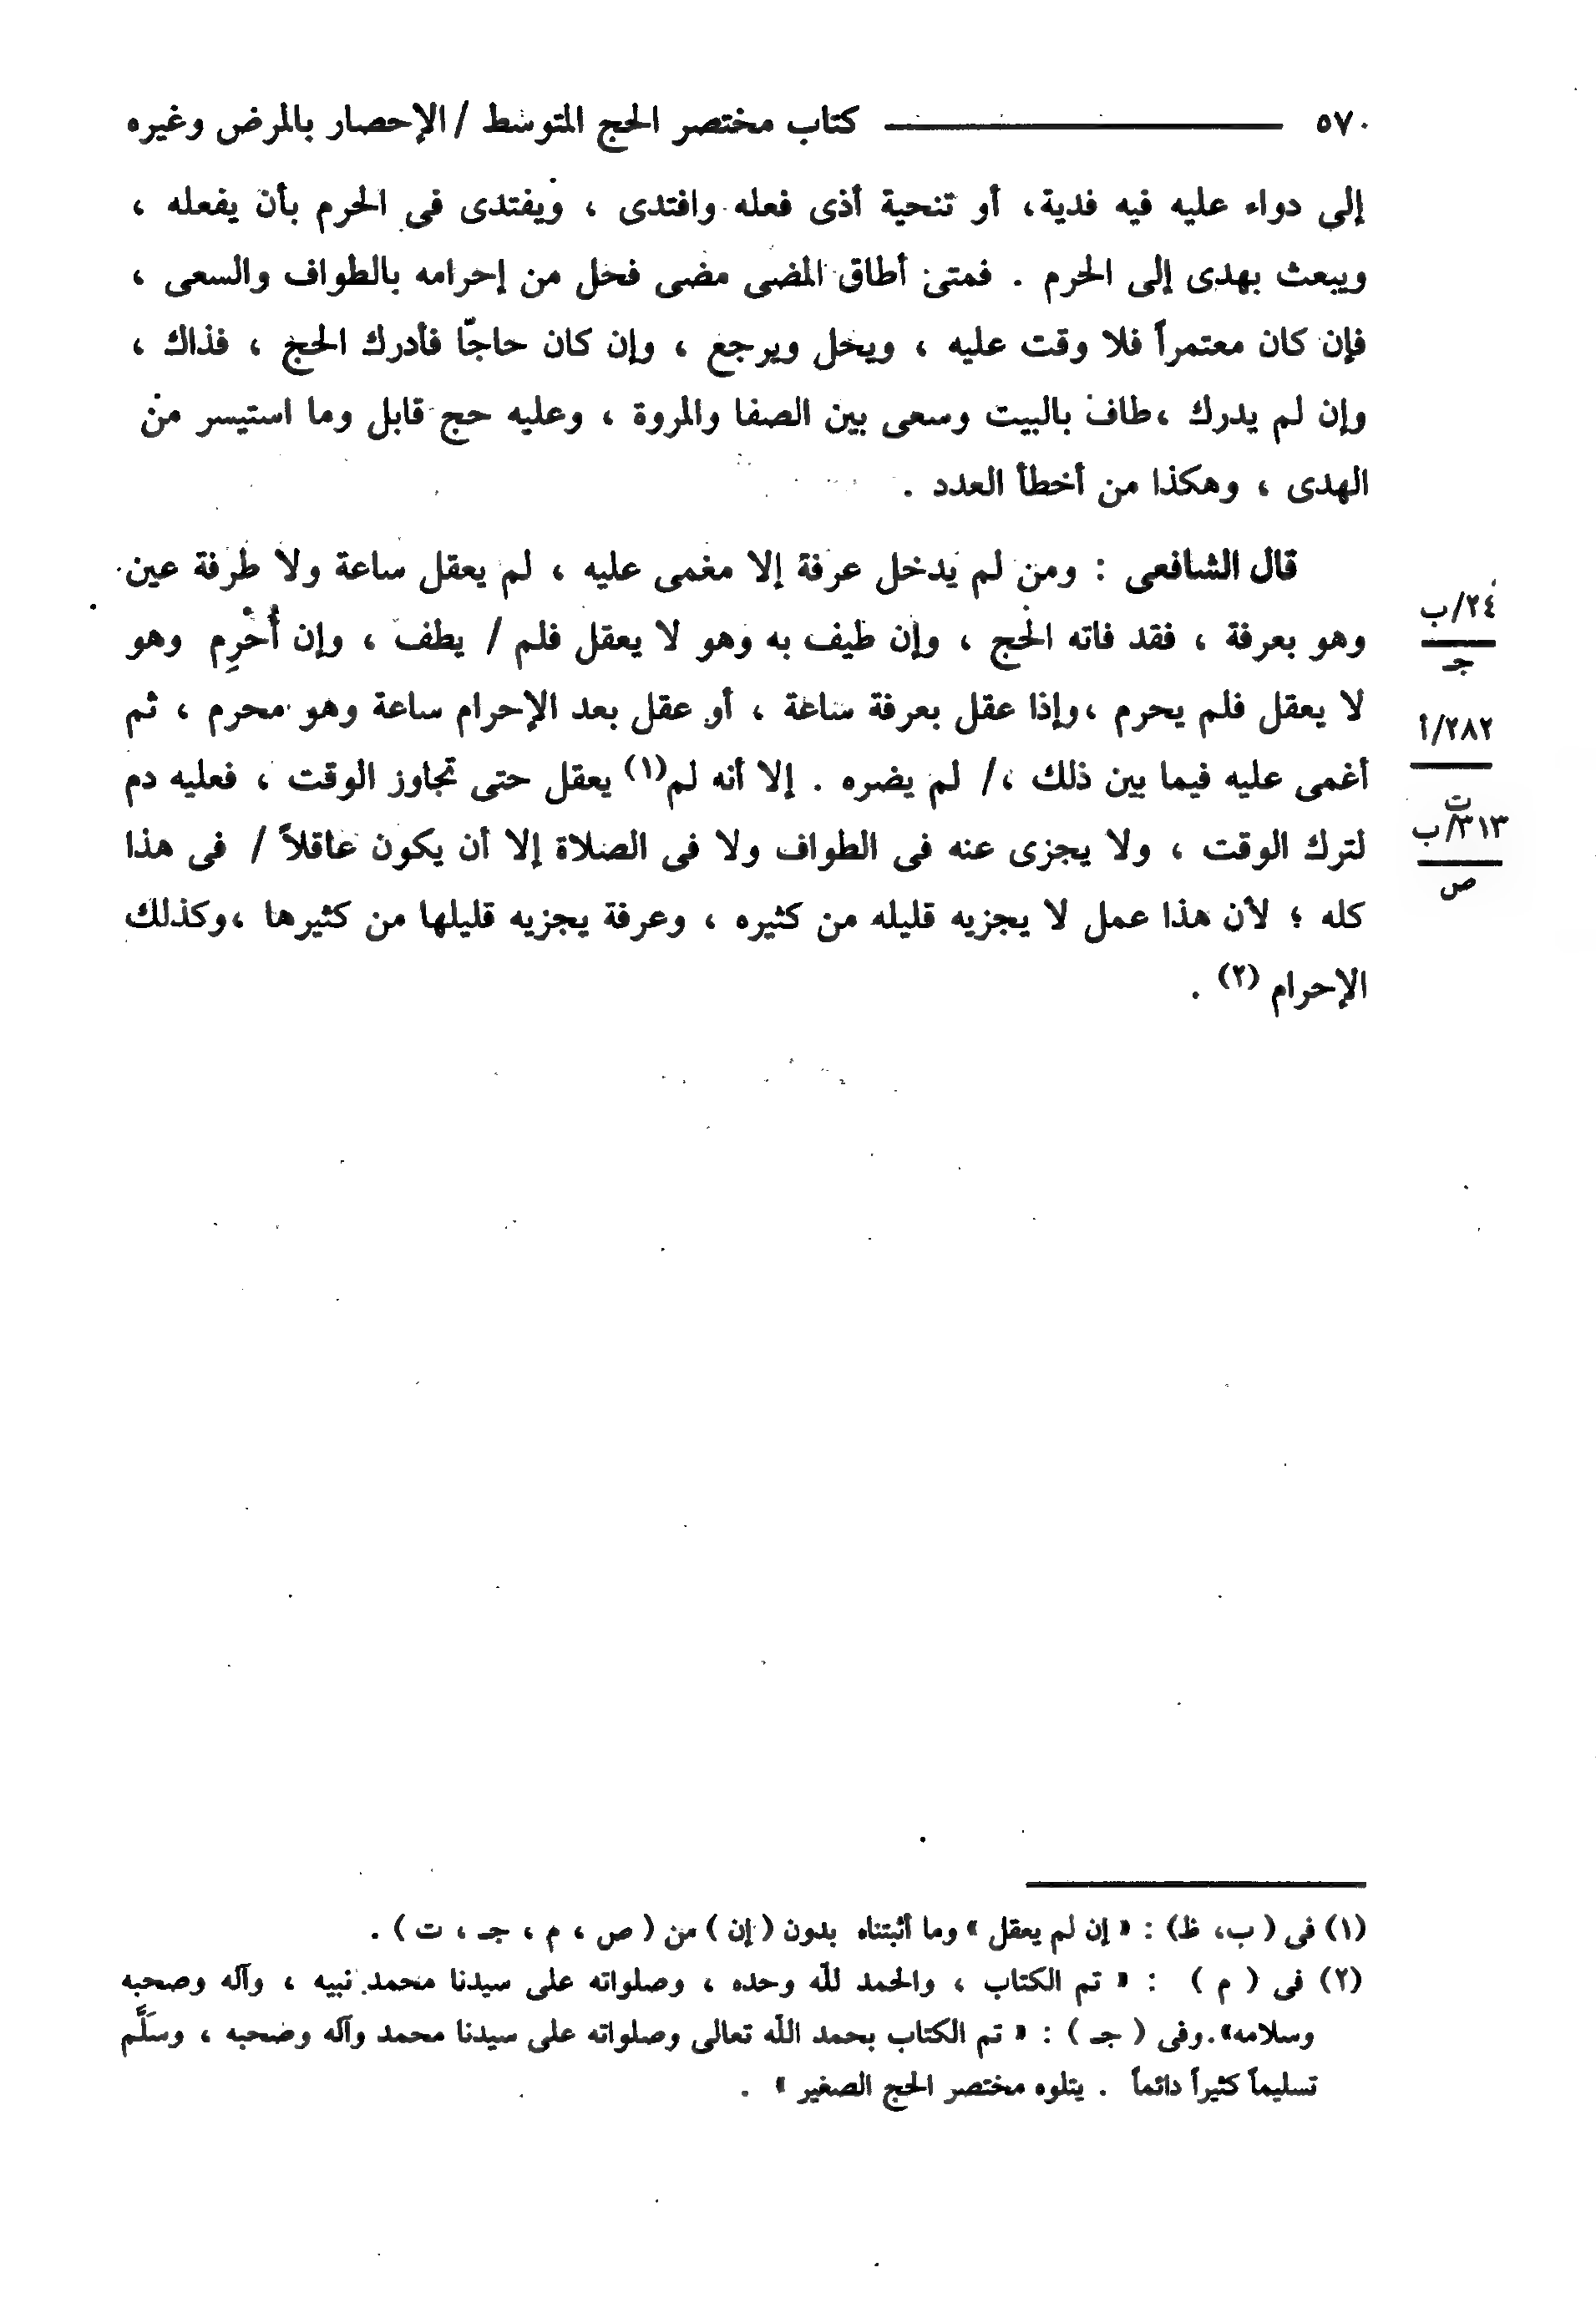 ٥٧٠ كتاب مختصر الحج المتوسط / الإحصار بالمرض وغيره
إلى دواء عليه فيه فدية، أو تنحية أذى فعله وافتدى ، ويفتدى فى الحرم بأن يفعله ،
ويبعث بهدى إلى الحرم . فمتى أطاق المضى مضى فحل من إحرامه بالطواف والسعى ،
فإن كان معتمراً فلا وقت عليه ، ويحل ويرجع ، وإن كان حاجّا فأدرك الحج ، فذاك ،
وإن لم يدرك ،طاف بالبيت وسعى بين الصفا والمروة ، وعليه حج قابل وما استيسر من
الهدى ، وهكذا من أخطأ العدد .
قال الشافعى : ومن لم يدخل عرفة إلا مغمى عليه ، لم يعقل ساعة ولا طرفة عين
وهو بعرفة ، فقد فاته الحج ، وإن طيف به وهو لا يعقل فلم / يطف ، وإن أُحْرِم وهو
٢٤/ب
جـ
لا يعقل فلم يحرم ،وإذا عقل بعرفة ساعة ، أو عقل بعد الإحرام ساعة وهو محرم ، ثم
٢٨٢/أ
ت
أغمى عليه فيما بين ذلك ،/ لم يضره . إلا أنه لم(١) يعقل حتى تجاوز الوقت ، فعليه دم
لترك الوقت ، ولا يجزى عنه فى الطواف ولا فى الصلاة إلا أن يكون عاقلاً / فى هذا
٣١٣/ب
ص
كله ؛ لأن هذا عمل لا يجزيه قليله من كثيره ، وعرفة يجزيه قليلها من كثيرها ،وكذلك
الإحرام (٢) .
(١) فى ( ب، ظ) : « إن لم يعقل » وما أثبتناه بدون ( إن ) من ( ص ، م ، جـ ، ت ) .
(٢) فى ( م ) : « تم الكتاب ، والحمد للّه وحده ، وصلواته على سيدنا محمد نبيه ، وآله وصحبه
وسلامه».وفى ( جـ ) : « تم الكتاب بحمد اللّه تعالى وصلواته على سيدنا محمد وآله وصحبه ، وسَلَّم
تسليماً كثيراً دائماً . يتلوه مختصر الحج الصغير » .